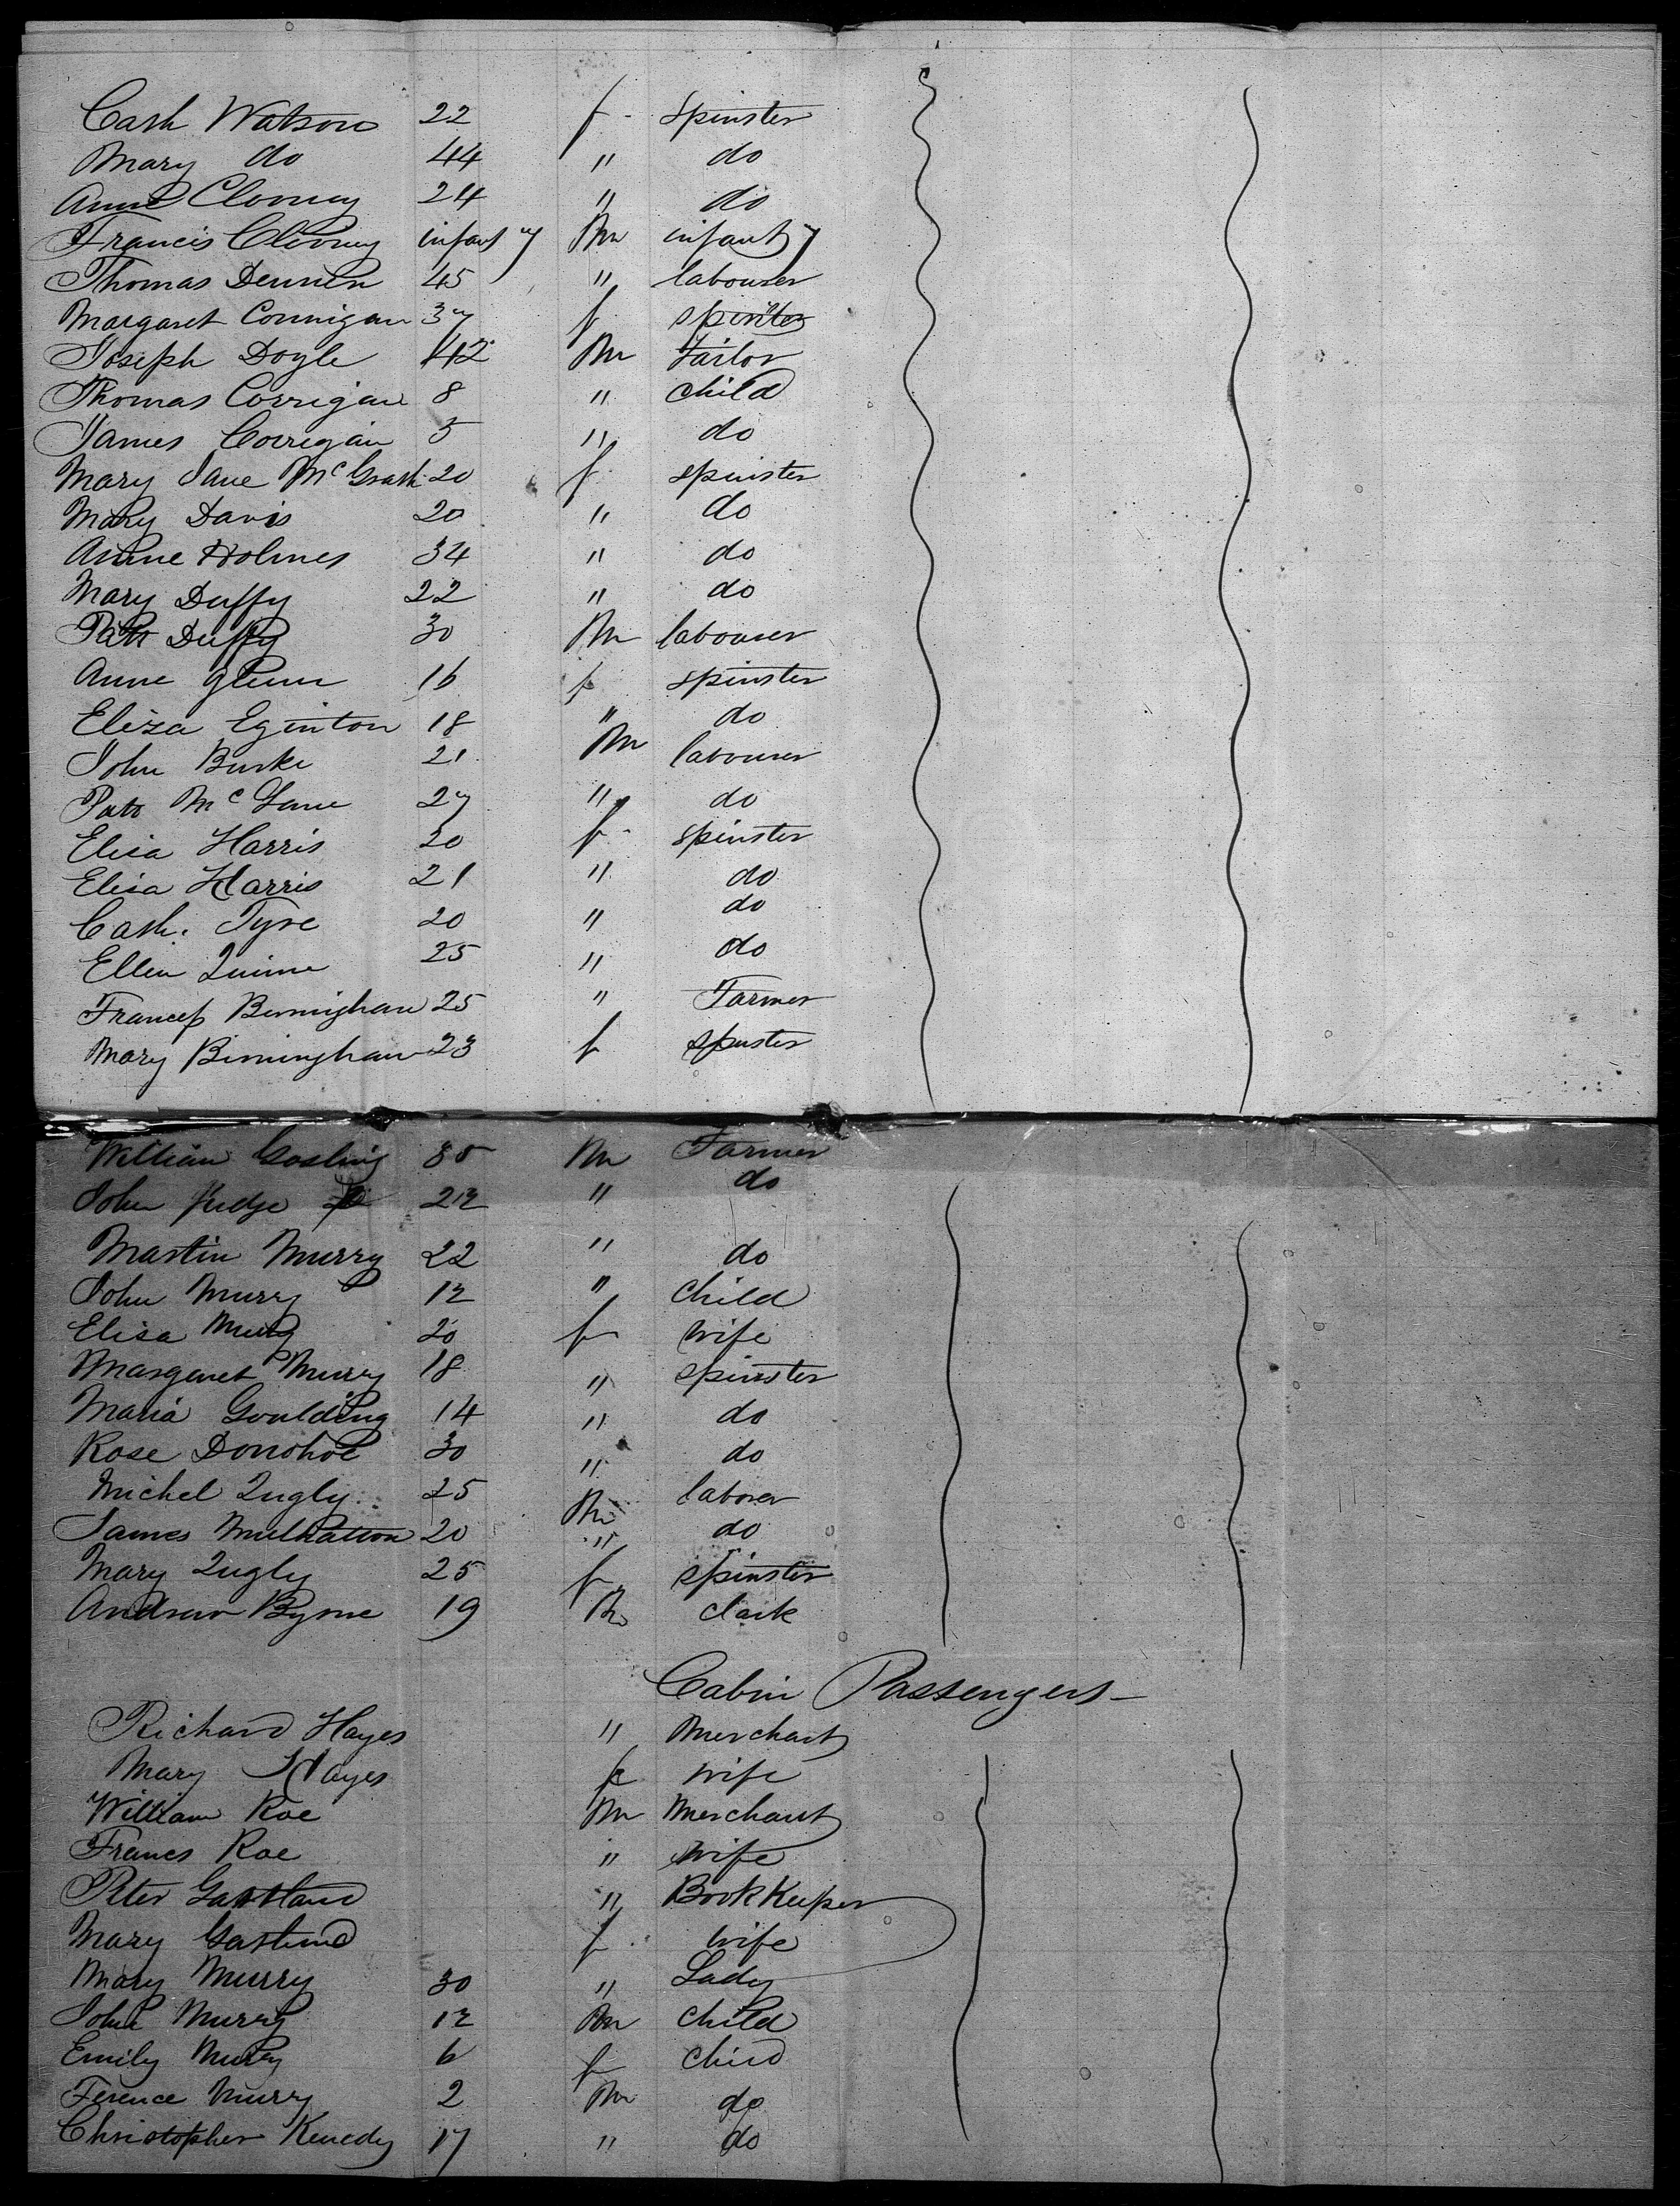 Cath Watson 22 f spinster
Mary do 44 " do
Anne Clooney 24 " do
Francis Clooney infant M infant
Thomas Dennen 45 " labourer
Margaret Connigan 37 f spinster
Joseph Doyle 42 M Tailor
Thomas Corrigan 8 " child
James Corrigan 5 " do
Mary Jane McGrath 20 f spinster
Mary Davis 20 " do
Anne Holmes 34 " do
Mary Duffy 22 " do
Patk Duffy 30 M labourer
Anne Glenn 16 f spinster
Eliza Eginton 18 " do
John Burke 21 M labourer
Patk Mc Lane 27 " do
Elisa Harris 20 f spinster
Elisa Harris 21 " do
Cath. Tyre 20 " do
Ellen Quinn 25 " do
Francis Birmingham 25 " Farmer
Mary Birmingham 23 f spinster
William Gosling 35 M Farmer
John Judge 22 " do
Martin Murry 22 " do
John Murry 12 " child
Elisa Murry 20 f wife
Margaret Murry 18 " spinster
Maria Goulding 14 " do
Rose Donohoe 30 " do
Michel Qugly 25 M laborer
James Mulhatton 20 " do
Mary Qugly 25 f spinster
Andrew Byrne 19 M clark
Cabin Passengers
Richard Hayes " Merchant
Mary Hayes f wife
William Roe M Merchant
Frances Roe " wife
Peter Gartland " Book Keeper
Mary Gartland f wife
Mary Murry 30 " Lady
John Murry 12 M child
Emily Murry 6 f child
Terence Murry 2 M do
Christopher Kenedy 17 " do